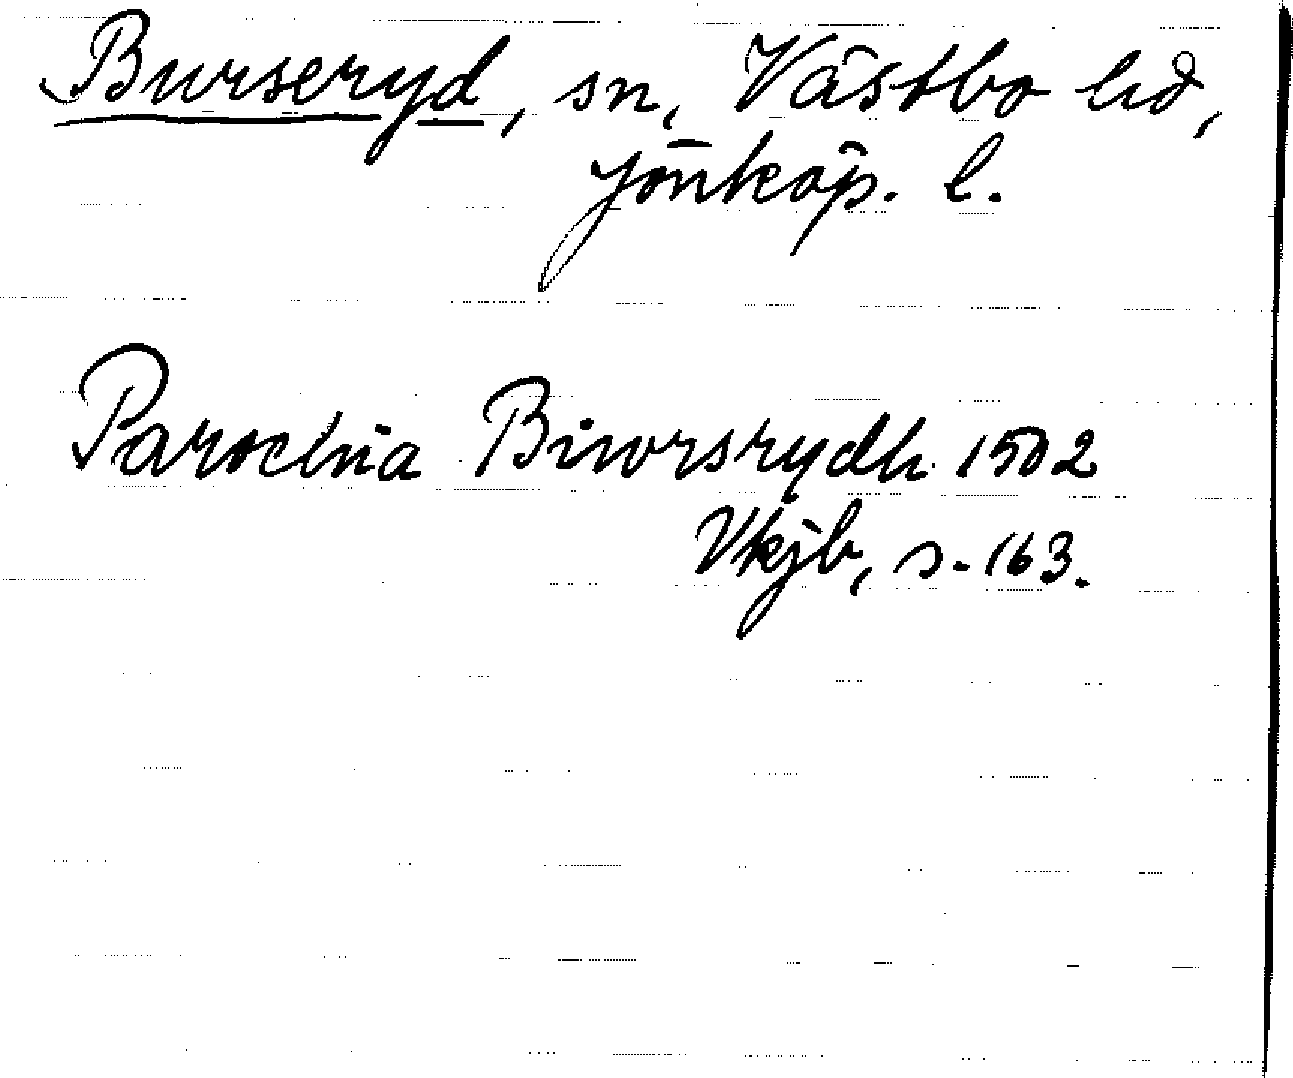 Burseryd, sn, Västbo hd,
Jönköp. l.
Parochia Biwrsrydh 1502
Vkjb, s. 163.